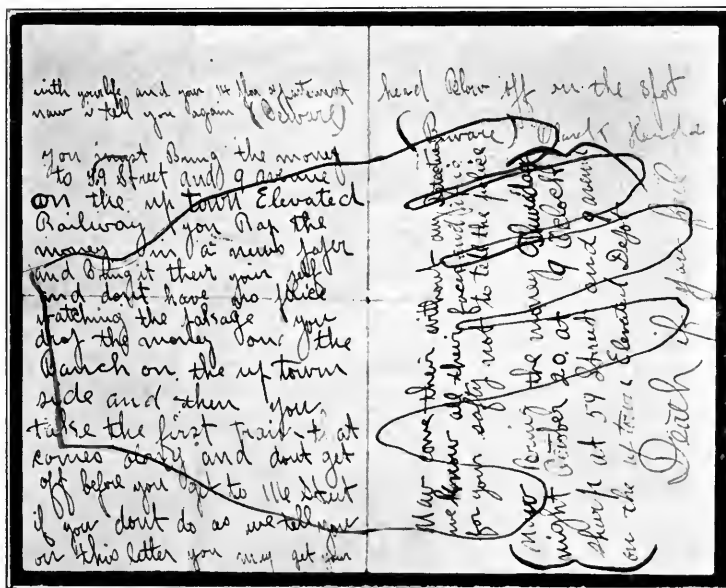 with your life and your
now i tell you again (Beware)
You must Bring the money
to 59 Street and 9 avenue
on the up town Elevated
Railway you Rap the
money in a news paper
and Bring it their your self
and dont have no police
watching the passage you
drop the money on the
Banch on the up town
side and then you
take the first train that
comes along and dont get
off before you get to 116 Street
if you dont do as we tell you
on this letter you may get your
head Blow off on the spot
(Beware) Hand
Now come their without any
we know all their faces and it is
for your safty not to tell the police
Now Bring the money Thursday
night October 20 at 9 oclock
sharp at 59 Street and 9 avenue
on the up town Elevated Depo
Death if you fail